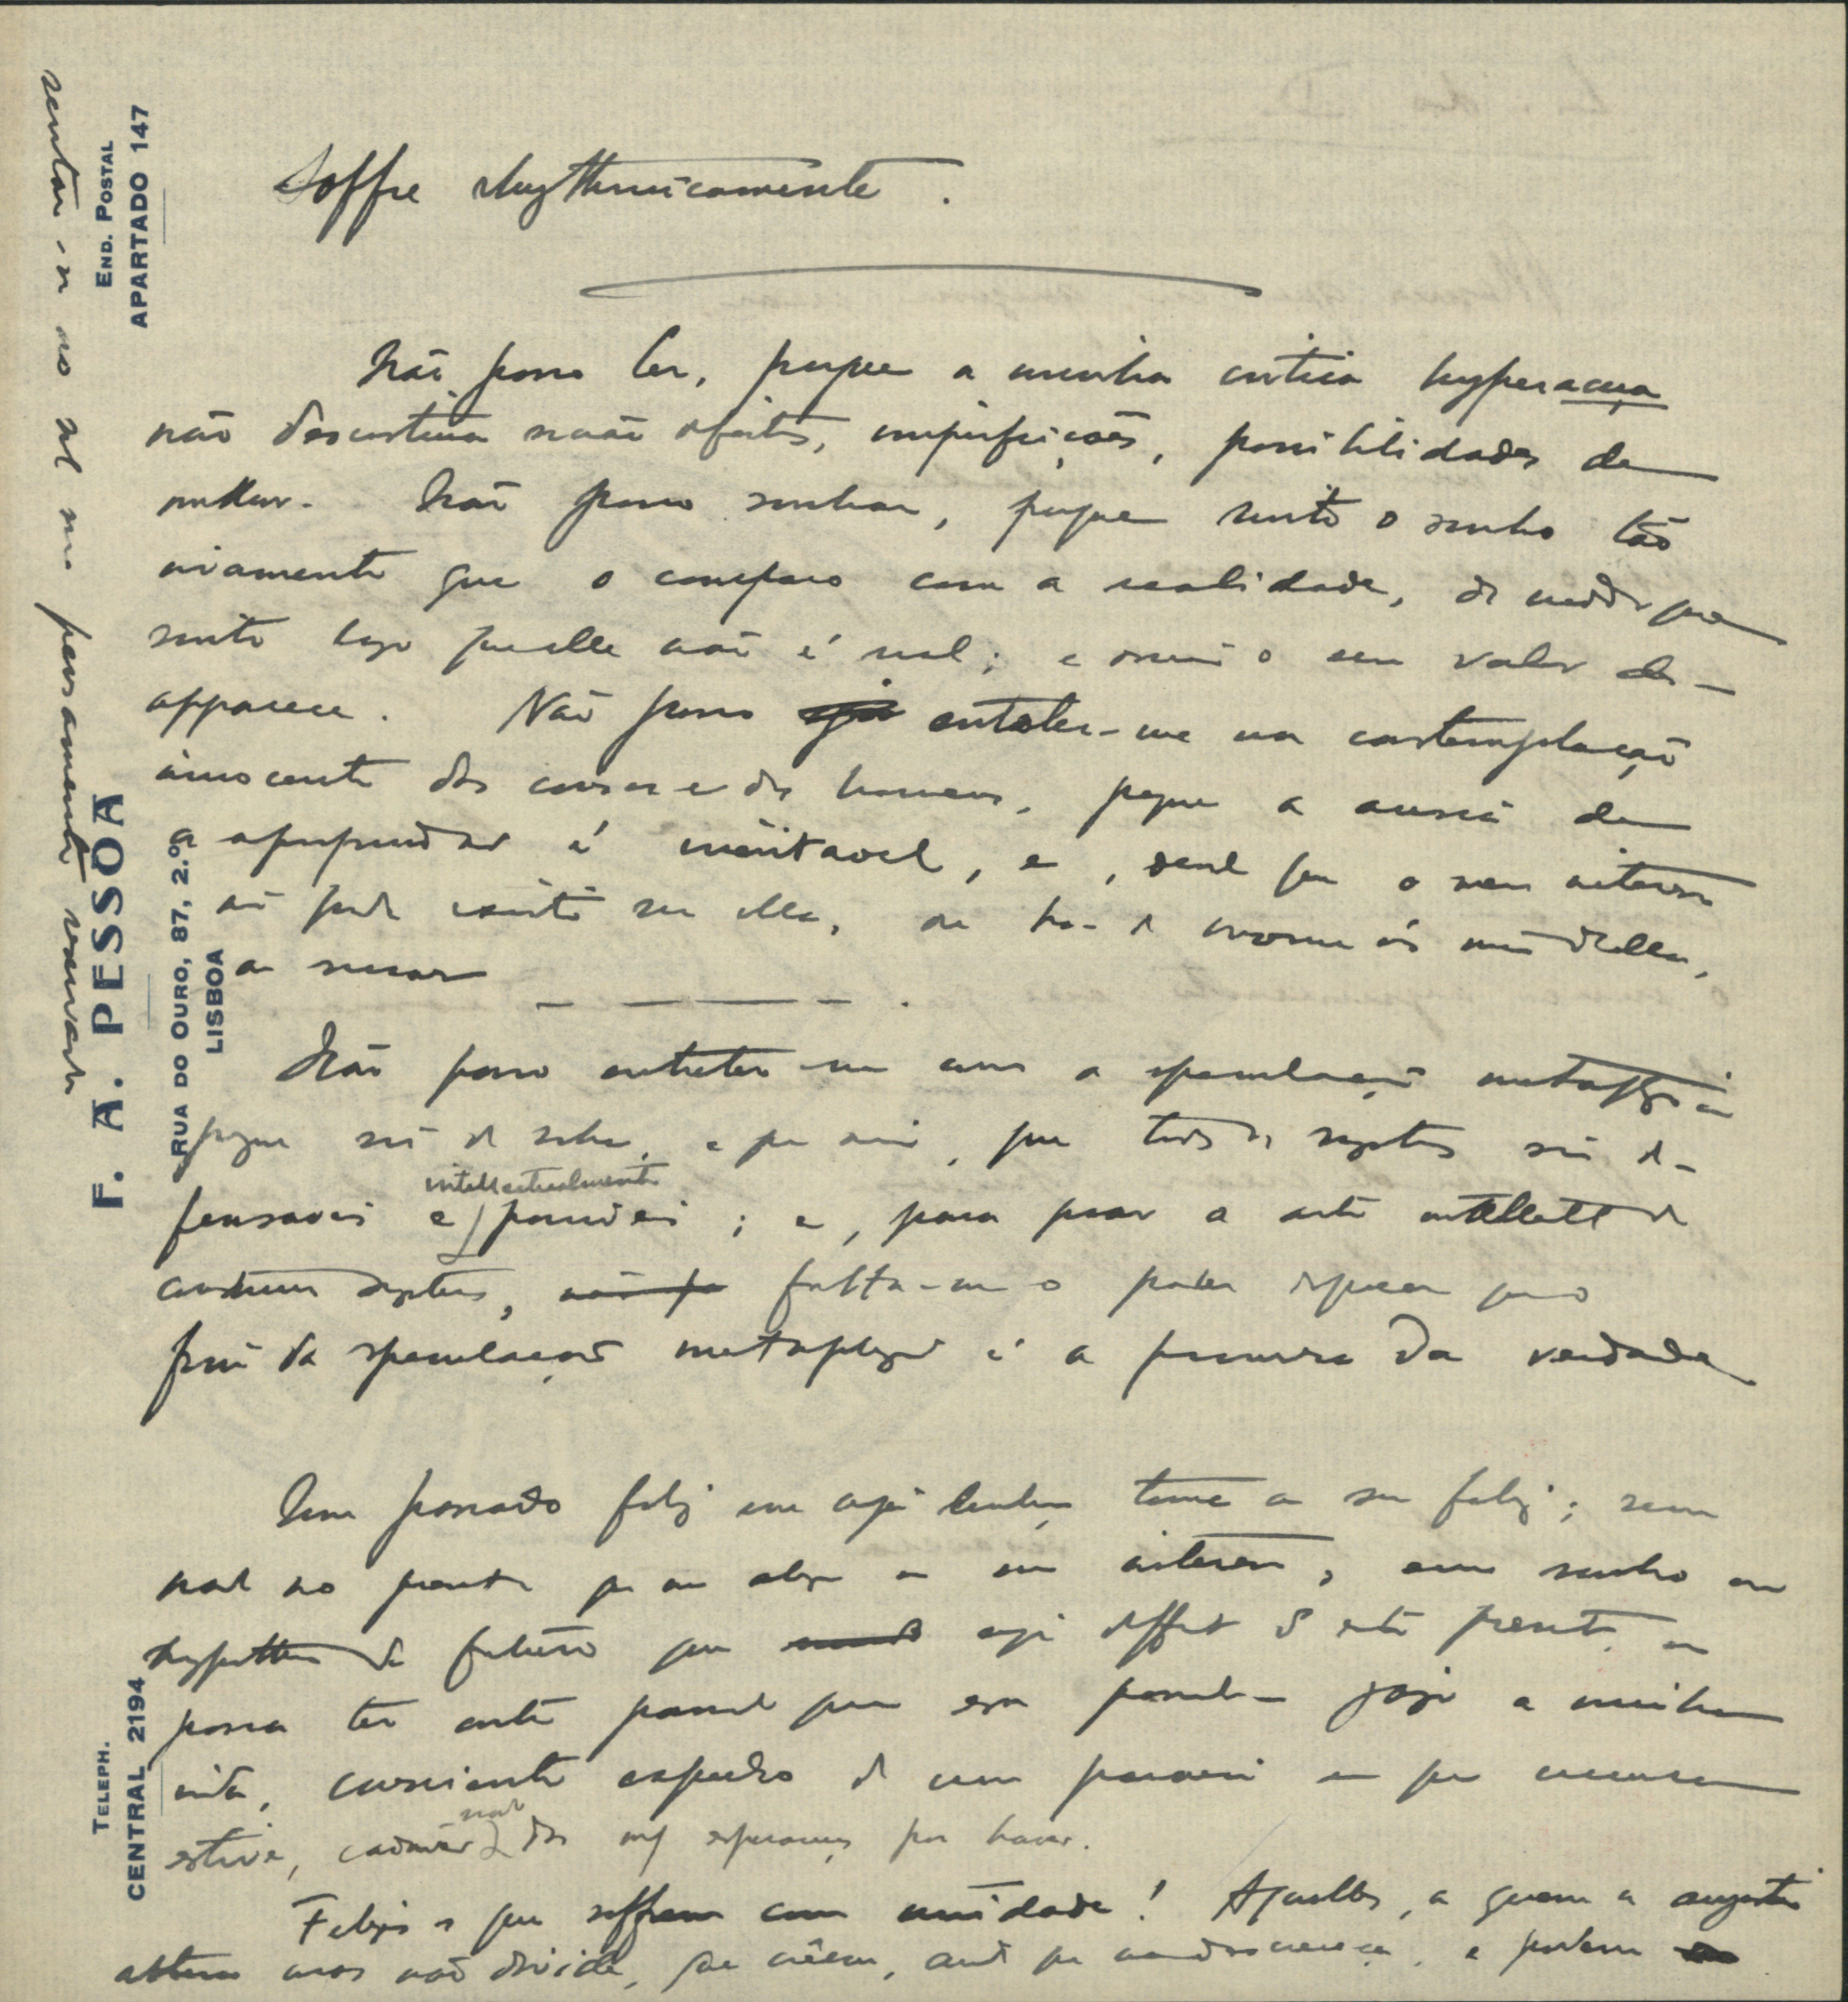 Soffre rhythmicamente.
Não posso ler, porque a minha critica hyperacesa
não descortina senão defeitos, imperfeições, possibilidades de
melhor. Não posso sonhar, porque sinto o sonho tão
vivamente que o comparo com a realidade, de modo que
sinto logo que elle não é real; e assim o seu valor des-
apparece. Não posso entreter-me na contemplação
innocente das cousas e dos homens, porque a ansia de
aprofundar é inevitavel, e, desde que o meu interesse
não pode existir sem ella, ou ha-de morrer ás mãos della,
ou seccar
Não posso entreter-me com a especulação metaphysica
porque sei de sobra, e por mim, que todos os systemas são de-
fensaveis e intellectualmente possiveis; e, para gosar a arte intellectual de
construir systemas, falta-me o poder esquecer que o
fim da especulação metaphysica é a procura da verdade
Um passado feliz em cuja lembrança torne a ser feliz; sem
nada no presente que me alegre ou me interesse, sem sonho ou
hypothese de futuro que seja differente d'este presente ou
possa ter outro passado que esse passado – jazo a minha
vida, consciente espectro de um paraiso em que nunca
estive, cadaver nado das minhas esperanças por haver.
Felizes os que soffrem com unidade! Aquelles, a quem a angustia
altera mas não divide, que crêem, ainda que na descrença, e podem
sentar-se no sol sem pensamento reservado
END. POSTAL
APARTADO 147
F. A. PESSÔA
RUA DO OURO, 87, 2.º
LISBOA
TELEPH.
CENTRAL 2194